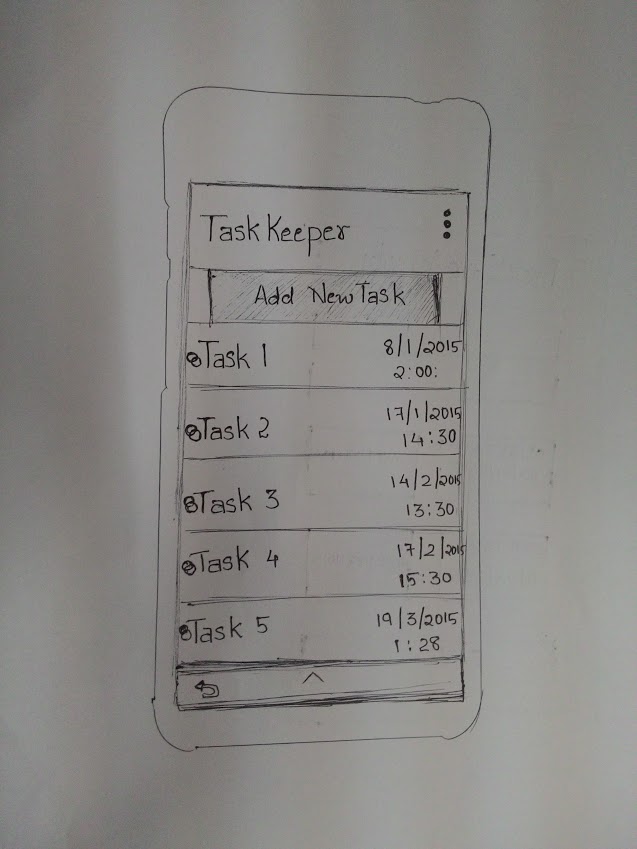 Task Keeper
Add New Task
Task 1 8/1/2015
2:00:
Task 2 17/1/2015
14:30
Task 3 14/2/2015
13:30
Task 4 17/2/2015
15:30
Task 5 19/3/2015
1:28